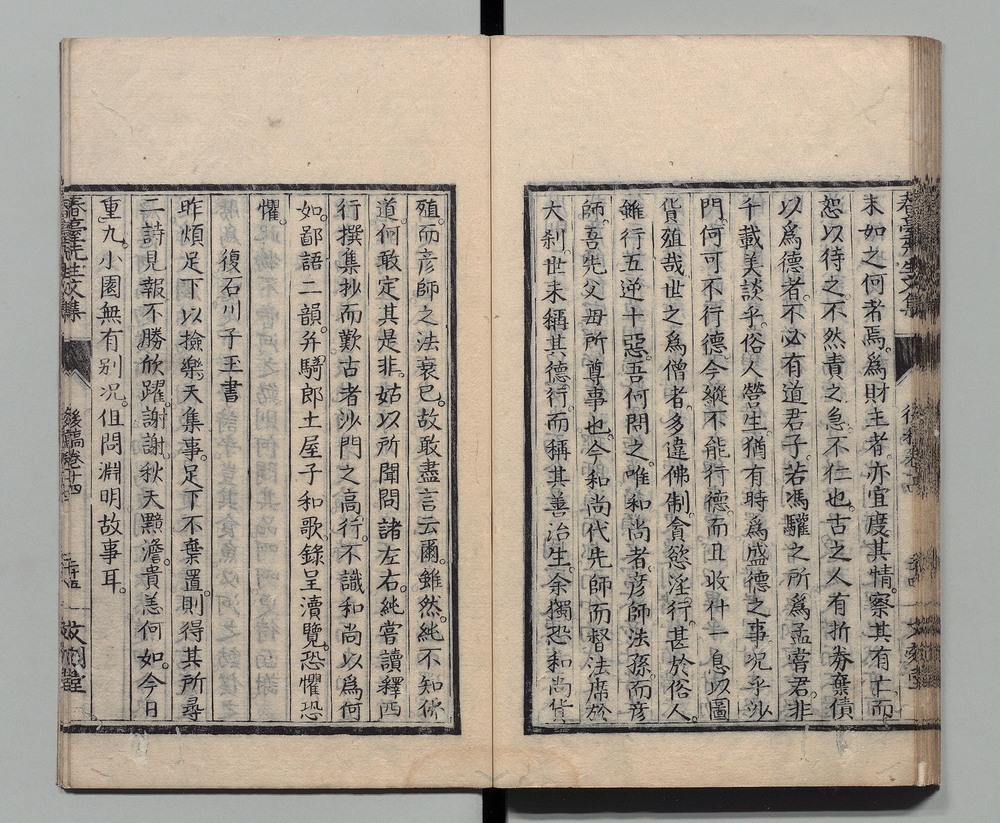 末如之何者焉。爲財主者。亦宜度其情。察其有亡。而
恕以待之。不然責之急。不仁也。古之人有折券棄債
以爲德者。不必有道君子。若馮驩之所爲孟嘗君。非
千載美談乎。俗人營生。猶有時爲盛德之事。况乎沙
門。何可不行德。今縱不能行德。而且收什一息。以圖
貨殖哉。世之爲僧者。多違佛制。貪慾淫行。甚於俗人。
雖行五逆十惡。吾何問之。唯和尚者。彦師法孫。而彦
師。吾先父母所尊事也。今和尚代先師而督法席於
大刹。世未稱其德行。而稱其善治生。余獨恐和尚貨
春臺先生文集 後稿卷十四 二十四 文刻堂
殖。而彦師之法衰已。故敢盡言云爾。雖然純不知佛
道。何敢定其是非。姑以所聞問諸左右。純嘗讀釋西
行撰集抄。而歎古者沙門之高行。不識和尚以爲何
如。鄙語二韻。幷騎郎土屋子和歌。錄呈瀆覽。恐懼恐
懼。
復石川子玉書
昨煩足下以撿樂天集事。足下不棄置。則得其所尋
二詩見報。不勝欣躍。謝謝。秋天黯澹。貴恙何如。今日
重九。小園無有别况。但問淵明故事耳。
春臺先生文集 後稿卷十四 二十五 文刻堂